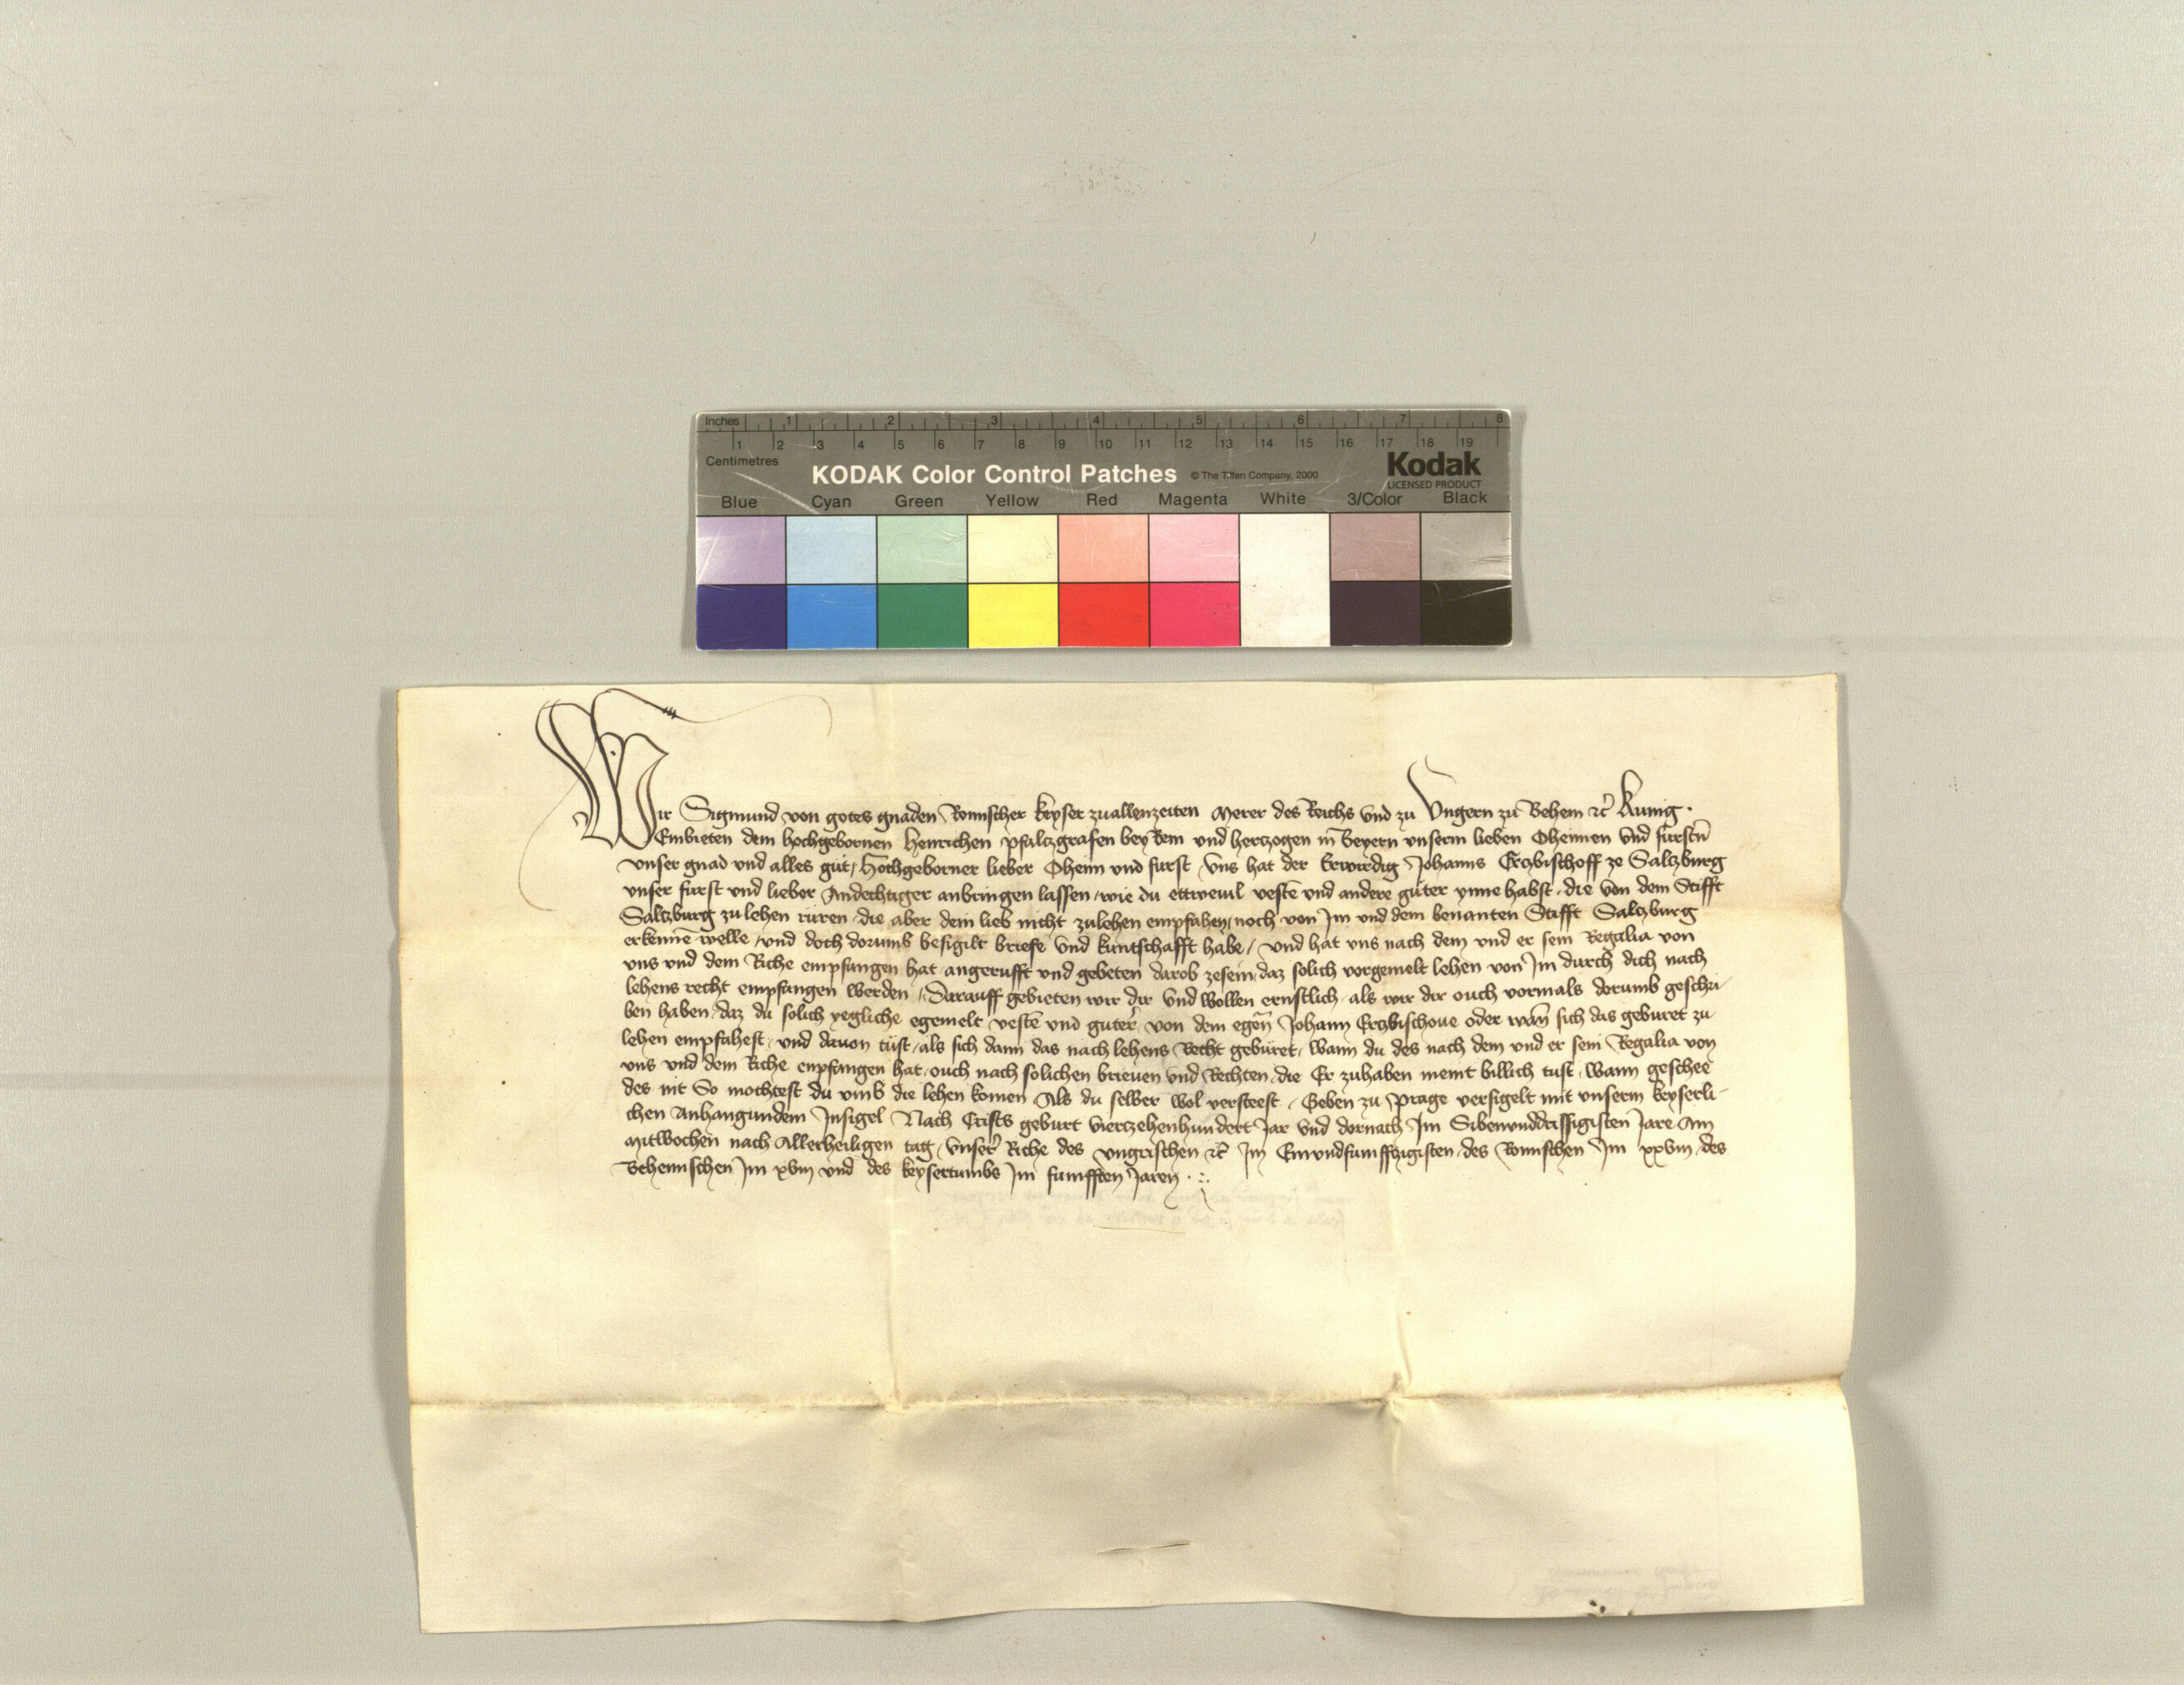 Inches 1 2 3 4 5 6 7 8
1 2 3 4 5 6 7 8 9 10 11 12 13 14 15 16 17 18 19
Centimetres
KODAK Color Control Patches © The Tiffen Company, 2000 Kodak
LICENSED PRODUCT
Blue Cyan Green Yellow Red Magenta White 3/Color Black
Wir Sigmund von gotes gnaden Romischer keyser zuallenzeiten Merer des Reichs vnd zu Vngern zu Behem ꝛc̃ Kunig.
Embieten dem hochgebornen Henrichen pfaltzgrafen bey Rein und hertzogen in Beyern unserm lieben Oheimen vnd fursten̄
vnser gnad und alles gut, Hochgeborner lieber Oheim vnd furst, vns hat der Erwirdig Johanns Erczbischoff ze Saltzburg
vnser furst vnd lieber Andechtiger anbringen lassen, wie du ettweuil veste und andere guter ynne habst, die von dem Stifft
Saltzburg zu lehen ruren, die aber dein lieb nicht zulehen empfahen, noch von Im und dem benanten Stifft Saltzburg
erkennē welle, vnd doch dorumb besigilt briefe vnd kuntschafft habe, vnd hat vns nach dem vnd er sein Regalia von
vns vnd dem Riche empfangen hat, angerufft vnd gebeten darob zesein, daz solich vorgemelt lehen von Im durch dich nach
lehens recht empfangen werden, Darauff gebieten wir dir vnd wollen ernstlich, als wir dir ouch vormals dorumb geschri-
ben haben, daz du solich yegliche egemelt veste vnd guter von dem egen̄ Johann Erczbischoue oder wan̄ sich das geburet zu
lehen empfahest, vnd dauon tust, als sich dann das nach lehens Recht geburet, wann du des nach dem vnd er sein Regalia von
vns vnd dem Riche enpfangen hat, ouch nach solichen brieuen vnd Rechten, die Er zuhaben meint billich tust, wann geschee
des nit So mochtest du vmb die lehen komen Als du selber wol versteest, Geben zu Prage versigelt mit vnserm keyserli-
chen Anhangundem Insigel Nach Crists geburt viertzehenhundert Jar vnd dornach Im Sibenunddrissigisten Jare Am
Mitwochen nach Allerheiligen tag, vnser Riche des vngrischen ꝛc̃ Im Einvndfumffzigisten, des Romischen Im xxviii, des
Behemischen Im xviii und des keysertumbs Im fumfften Jaren.